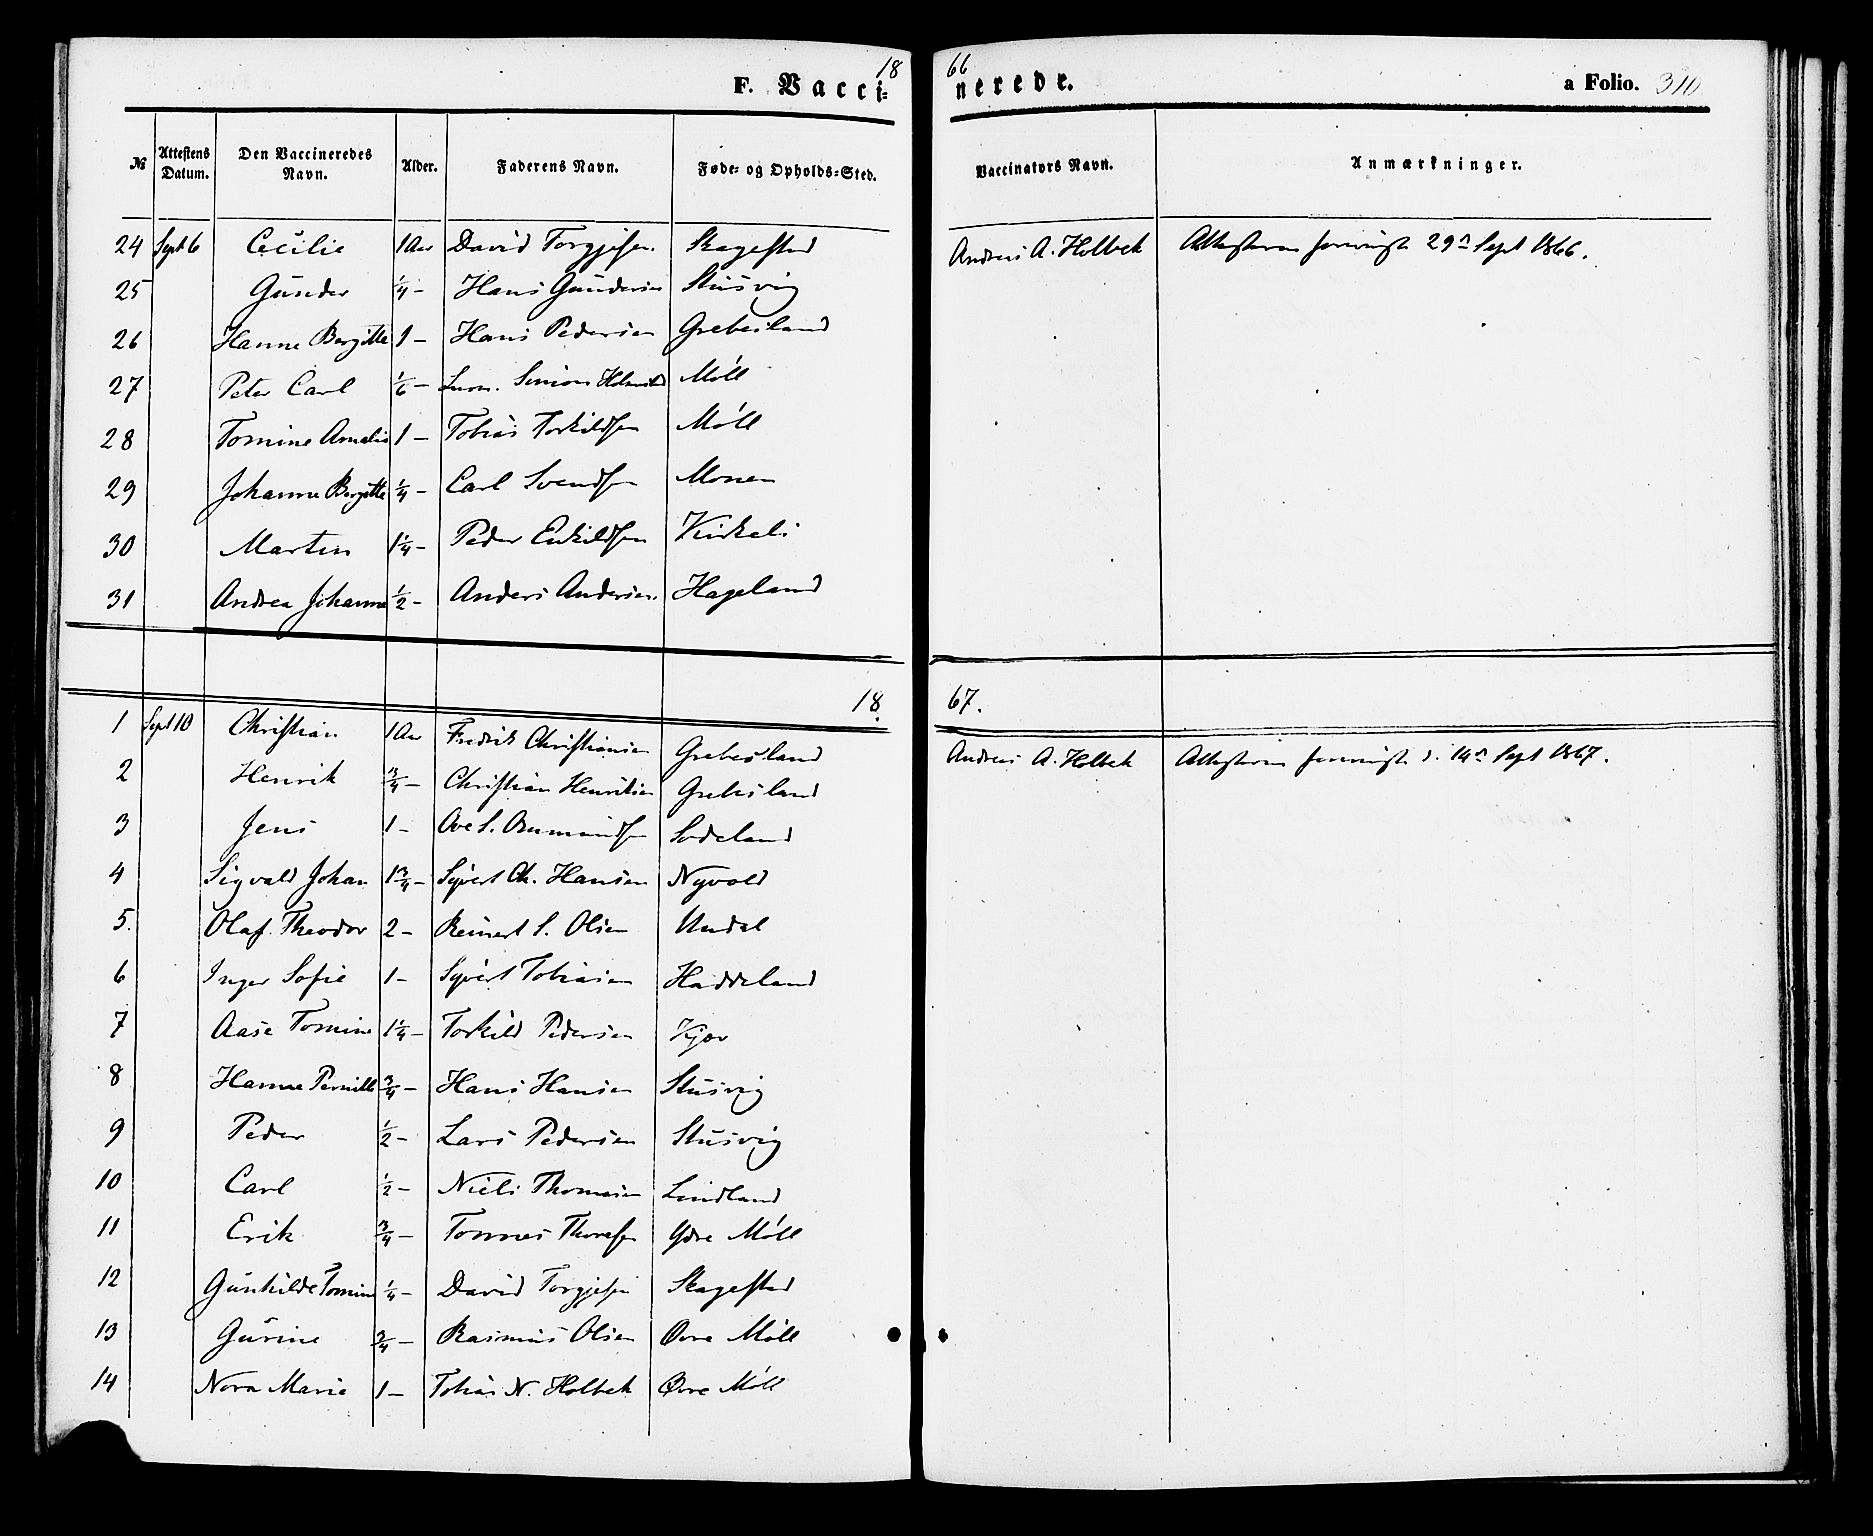 18 66
F. Vacci- nerede. a Folio. 310
№ Attestens Datum. Den Vaccineredes Navn. Alder. Faderens Navn. Føde- og Opholds-Sted. Vaccinators Navn. Anmærkninger.
24 Sept 6 Cecilie 1 Aar David Torgjesen. Skagestad Andreas A. Holbek Attesterne 29 Sept 1866.
25 Gunder 1/4 - Hans Gundersen Stusvig
26 Hanne Bergitte 1 - Hans Pedersen Grebesland
27 Peter Carl 1/6 - Møll
28 Tomine Amalie 1 - Tobias Torkildsen Møll
29 Johanne Bergitte 1/4 - Carl Svendsen Monen
30 Martin 1 1/4 - Peder Eskildsen
31 Andrea Johanne 1/2 - Anders Andersen. Hageland
18 67.
1 Sept 10 Christian 1 Aar Fredrik Christiansen Grebesland Andreas A. Holbek Attesterne d. 14 Sept 1867.
2 Henrik 3/4 - Christian Henriksen Grebesland
3 Jens 1 - Ove S. Osmundsen Sodeland
4 Sigvald Johan 1 3/4 - Syvert Ch. Hansen Nyvold
5. Olaf Theodor 2 - Reinert S. Olsen Undal
6 Inger Sofie 1 - Syvert Tobiasen Haddeland
7 Aase Tomine 1 1/4 - Torkild Pedersen Kjøv
8 Hanne Pernille 3/4 - Hans Hansen Stusvig
9 Peder 1/2 - Lars Pedersen Stusvig
10 Carl 1/2 - Niels Thomasen Lindland
11 Erik 3/4 - Tønnes Thoresen Ydre Møll
12 Gunhilde Tomine 1/4 - David Torgjesen Skagestad
13 Gurine 3/4 - Rasmus Olsen Øvre Møll
14 Nora Marie 1 - Tobias N. Holbek Øvre Møll